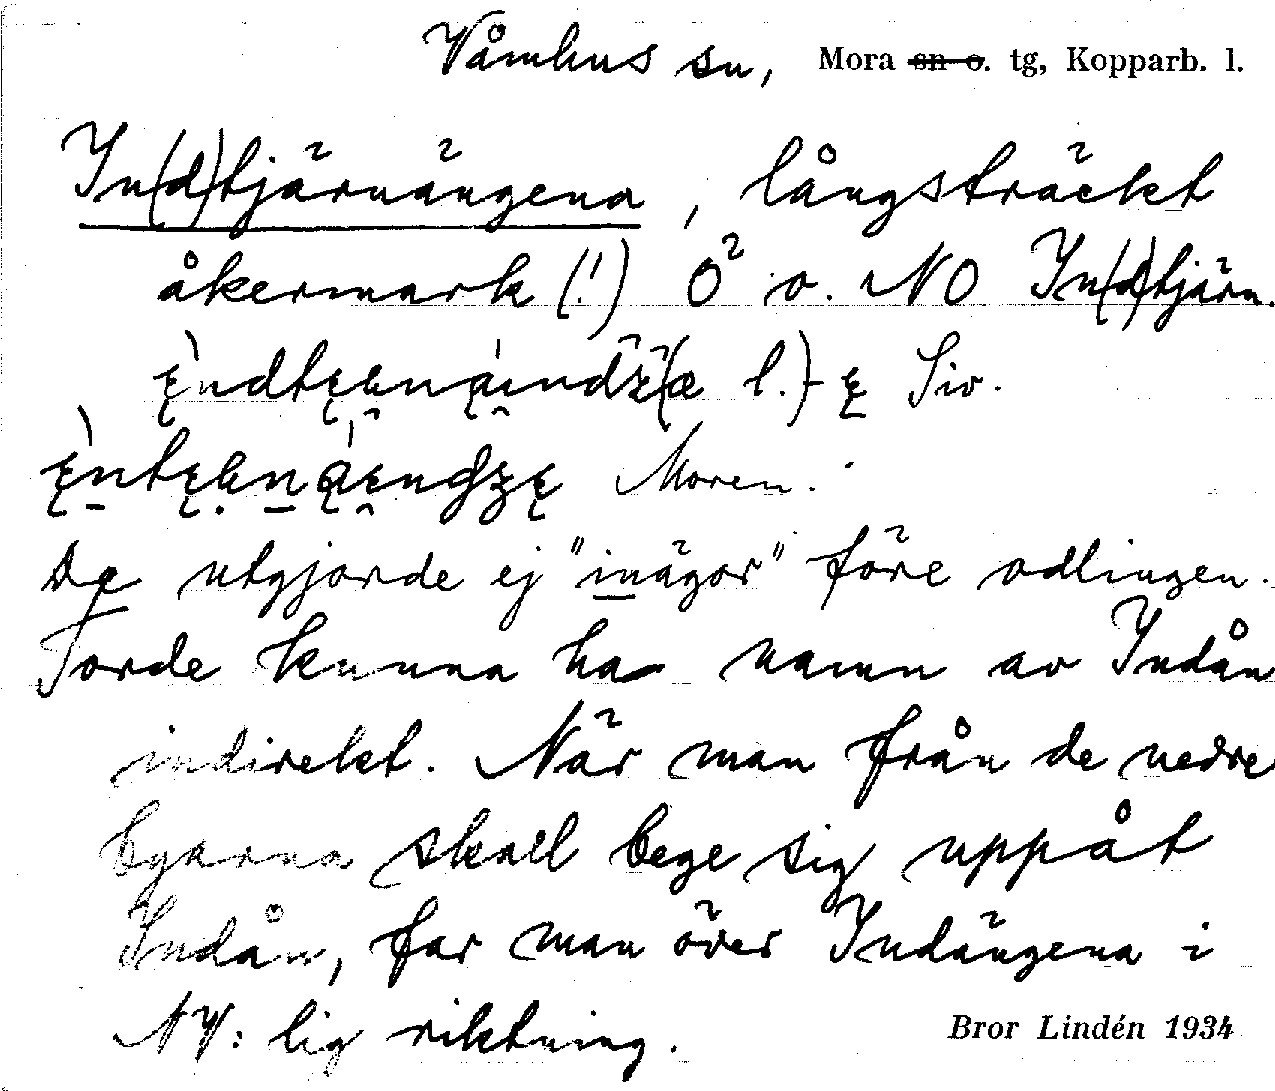 Våmhus sn, Mora sn o. tg, Kopparb. l.
In(d)tjärnängena, långsträckt
åkermark (!) Ö o. NO In(d)tjärn.
l.) Siv.
Moren.
De utgjorde ej "inägor" före odlingen.
Torde kunna ha namn av Indån
indirekt. När man från de nedre
byarna skall bege sig uppåt
Indån, far man över Indängena i
NV:lig riktning.
Bror Lindén 1934